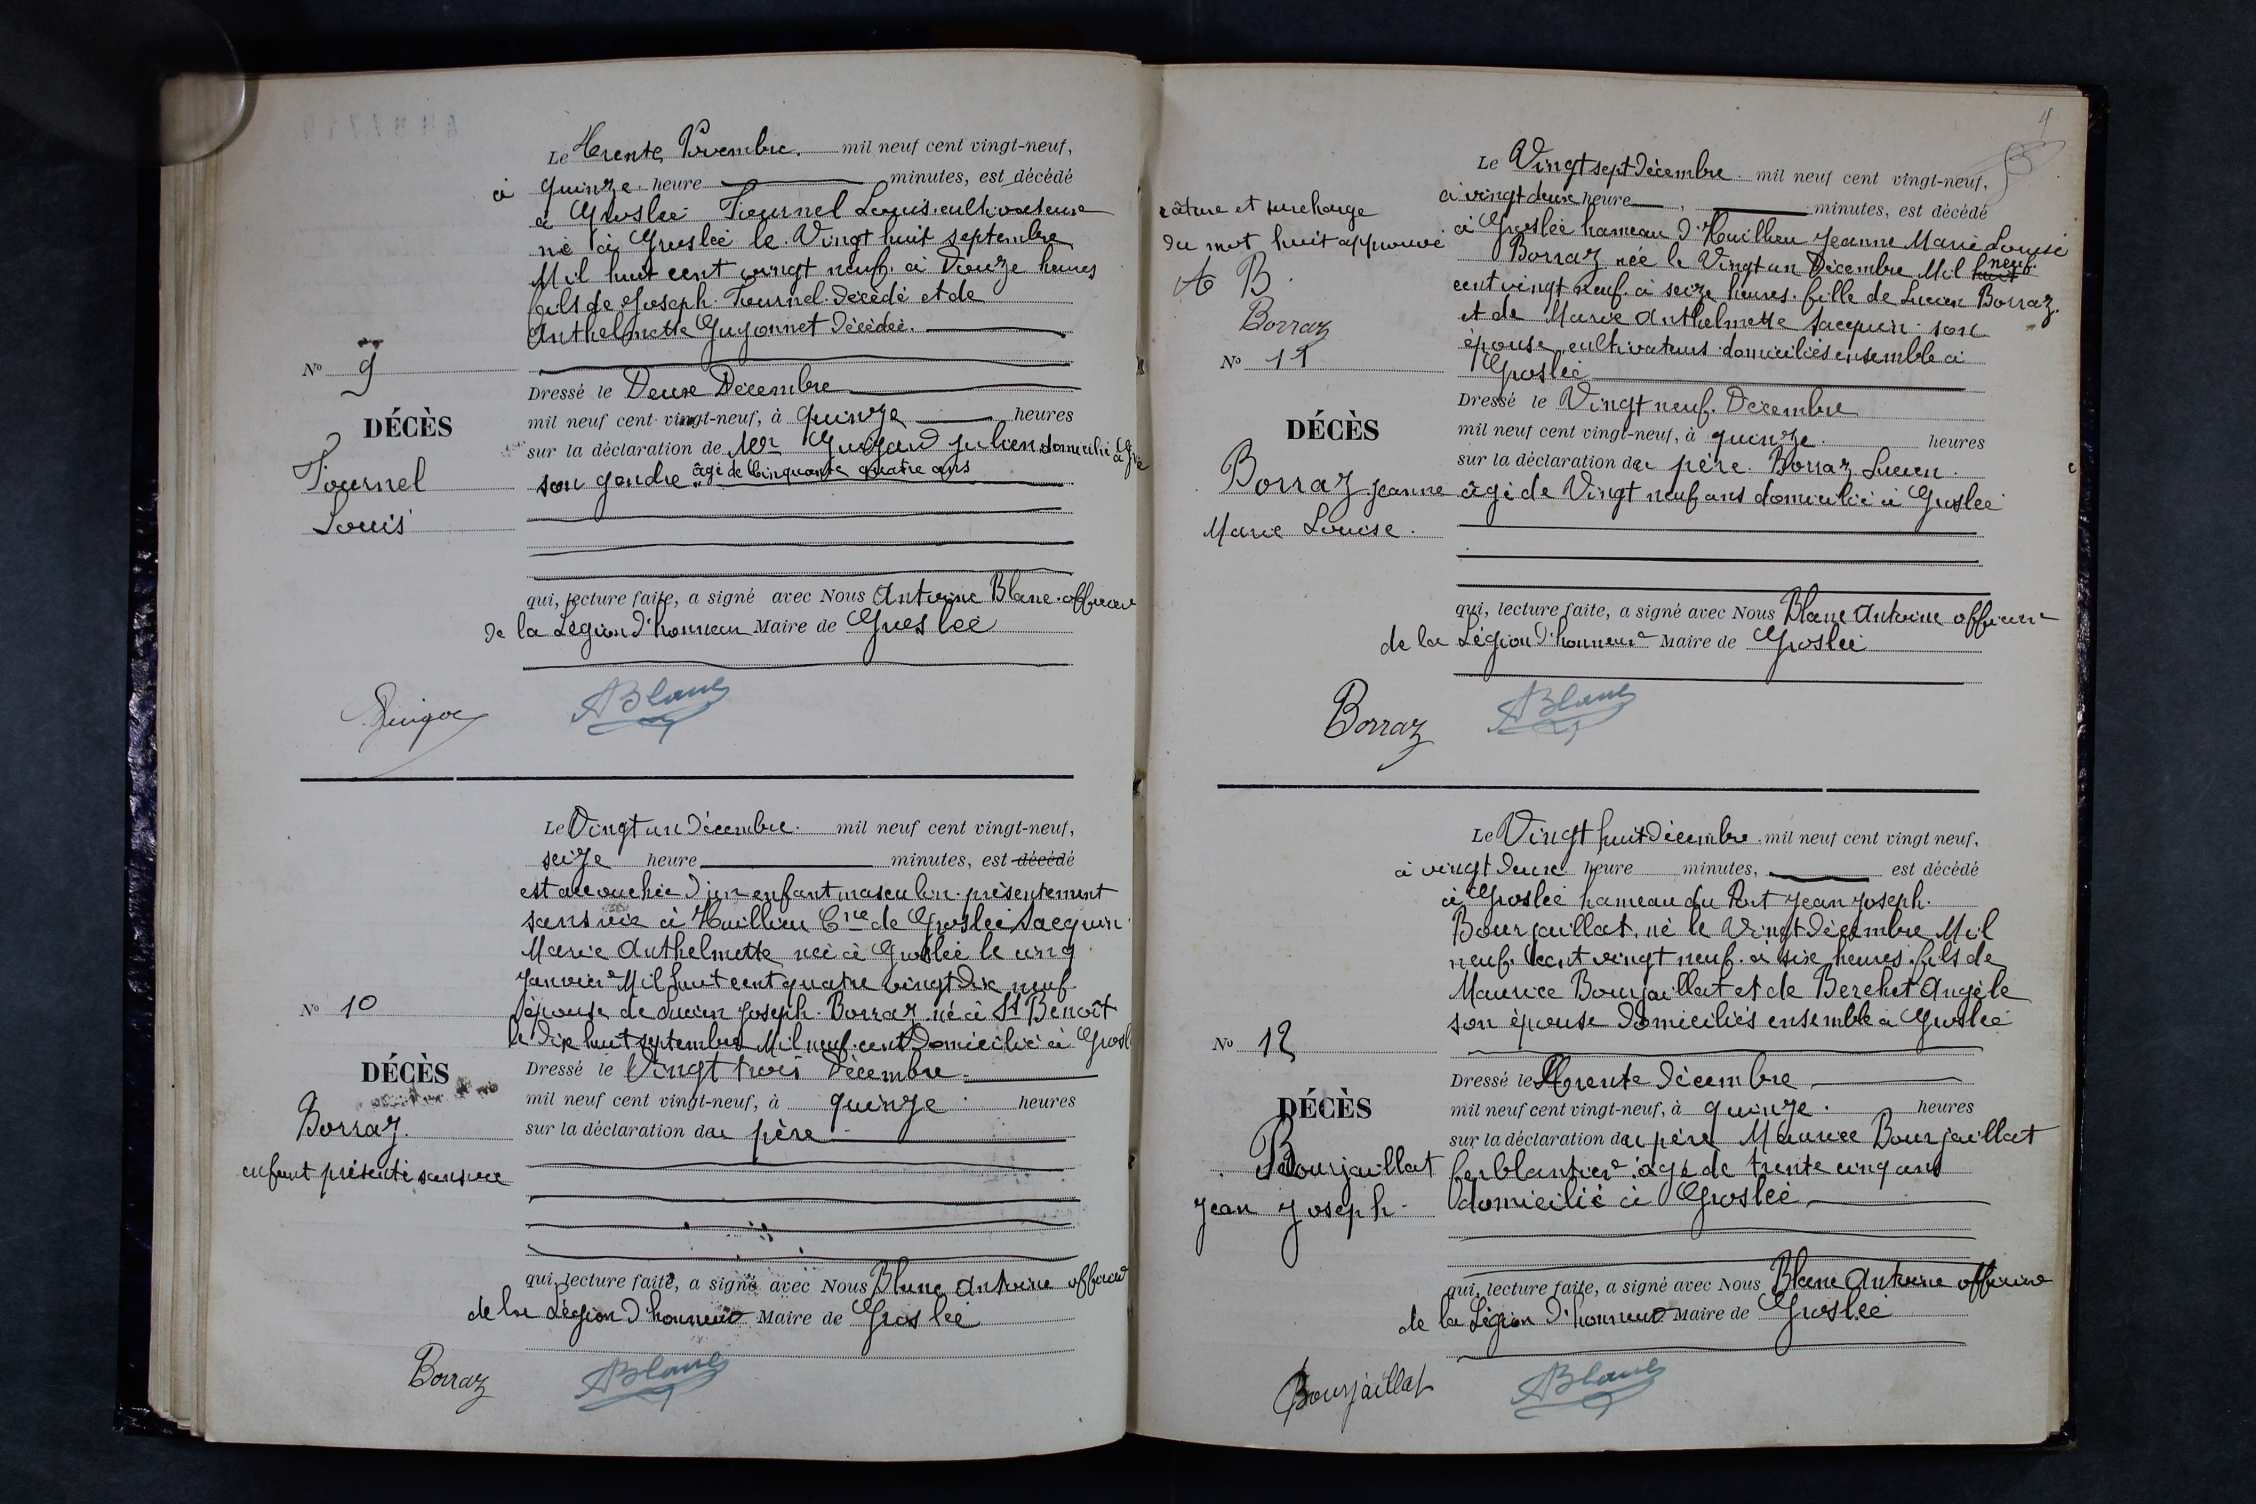 Le Trente Novembre. mil neuf cent vingt-neuf,
à quinze heure minutes, est décédé
à Groslée Tournel Louis. cultivateur
né à Groslée le Vingt huit septembre
Mil huit cent vingt neuf. à Douze heures
fils de Joseph. Tournel. décédé et de
Anthelmette Guyonnet décédée.
No 9
DÉCÈS
Tournel
Louis
Dressé le Deux Décembre
mil neuf cent vingt-neuf, à quinze heures
sur la déclaration de Mr Julien domicilié à
son gendre âgé de Cinquante quatre ans
qui, lecture faite, a signé avec Nous Antoine Blanc. officier
de la Légion d'honneur Maire de Groslée
ABlanc
Le Vingt un Décembre. mil neuf cent vingt-neuf,
seize heure minutes, est décédé
est accouchée d'un enfant masculin. présentement
sans vie à Huillieu Cne de Groslée Jacquin
Marie Anthelmette née à Groslée le cinq
Janvier Mil huit cent quatre vingt dix neuf
épouse de Lucien Joseph. Borraz né à St Benoît
le dix huit septembre Mil neuf. cent Domicilié à Grosl
No 10
DÉCÈS
Borraz.
enfant présenté sans vie
Dressé le Vingt trois Décembre.
mil neuf cent vingt-neuf, à quinze heures
sur la déclaration du père
qui, lecture faite, a signé avec Nous Blanc Antoine officier
de la Légion d'honneur Maire de Groslée
Borraz
ABlanc
4
Le Vingt sept Décembre. mil neuf cent vingt-neuf,
à vingt deux heure minutes, est décédé
à Groslée hameau d'Huillieu Jeanne Marie Louise
Borraz née le Vingt un Décembre Mil huit neuf.
cent vingt neuf. à seize heures. fille de Lucien Borraz.
et de Marie Anthelmette Jacquin son
épouse cultivateurs domiciliés ensemble à
Groslée
râture et surcharge
du mot huit approuvé
A B.
Borraz
No 11
DÉCÈS
Borraz Jeanne
Marie Louise.
Dressé le Vingt neuf. Décembre
mil neuf cent vingt-neuf, à quinze. heures
sur la déclaration du père. Borraz Lucien.
âgé de Vingt neuf ans domicilié à Groslée
qui, lecture faite, a signé avec Nous Blanc Antoine officier
de la Légion d'honneur Maire de Groslée
Borraz
ABlanc
Le Vingt huit Décembre. mil neuf cent vingt neuf,
à vingt deux heure minutes, est décédé
à Groslée hameau du Port Jean Joseph.
Bourjaillat. né le Vingt décembre Mil
neuf. cent vingt neuf. à six heures. fils de
Maurice Bourjaillat et de Berchet Angèle
son épouse Domiciliés ensemble à Groslée
No 12
DÉCÈS
Bourjaillat
Jean Joseph.
Dressé le Trente Décembre
mil neuf cent vingt-neuf, à quinze. heures
sur la déclaration du père Maurice Bourjaillat
ferblantier âgé de trente cinq ans
domicilié à Groslée
qui, lecture faite, a signé avec Nous Blanc Antoine officier
de la Légion d'honneur Maire de Groslée
Bourjaillat
ABlanc